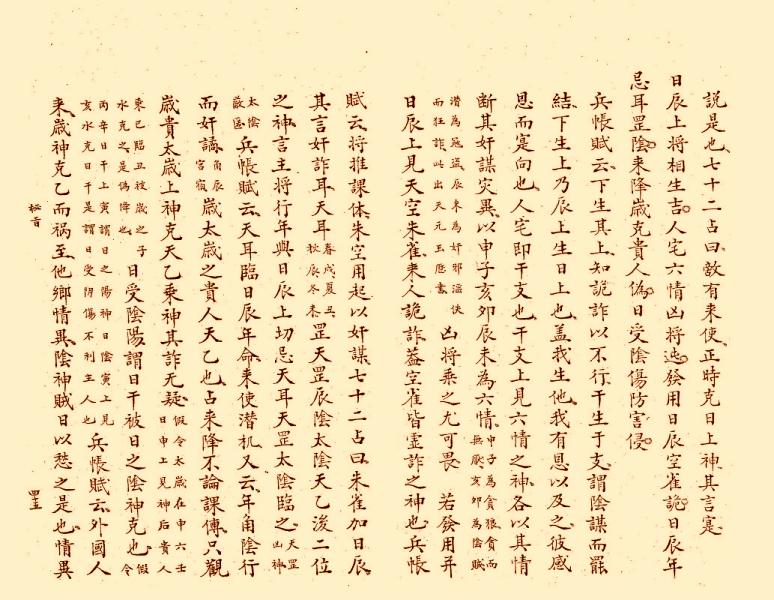 說是也七十二占曰敵有来使正時克日上神其言寔
日辰上将相生吉人宅六情凶将迯發用日辰空雀詭日辰年
忌耳罡陰来降歲克貴人偽日受陰傷防害侵
兵帳賦云下生其上知詭詐以不行干生于支謂陰謀而罷
結下生上乃辰上生日上也盖我生他我有恩以及之彼感
恩而寔向也人宅即干支也干支上見六情之神各以其情
断其奸謀灾異以申子亥卯辰未為六情申子為貪狠貪而無厭亥卯為陰賊
潜為冦盗辰未為奸邪滛泆而狂詐此出天元玉歷書凶将乘之尤可畏 若發用并
日辰上見天空朱雀来人詭詐葢空雀皆虚詐之神也兵帳
賦云将推課体朱空用起以奸謀七十二占曰朱雀加日辰
其言奸詐耳天耳春戌夏丑秋辰冬未罡天罡辰陰太陰天乙後二位
之神言主将行年與日辰上切忌天耳天罡太陰臨之天罡凶神
太陰蔽匿兵帳賦云天耳臨日辰年命来使潜机又云年角陰行
而奸譎角辰宫宿歲太歲之貴人天乙也占来降不論課傳只觀
歲貴太歲上神克天乙乘神其詐无疑假令太歲在申六壬日申上見神后貴人
乘巳臨丑被歲之子水克之是偽降也日受陰陽謂日干被日之陰神克也假令
丙辛日干上寅謂日之陽神日陰寅上見亥水克日干是謂日受阴傷不利主人也兵帳賦云外國人
来歲神克乙而祸至他鄉情異陰神賊日以愁之是也情異